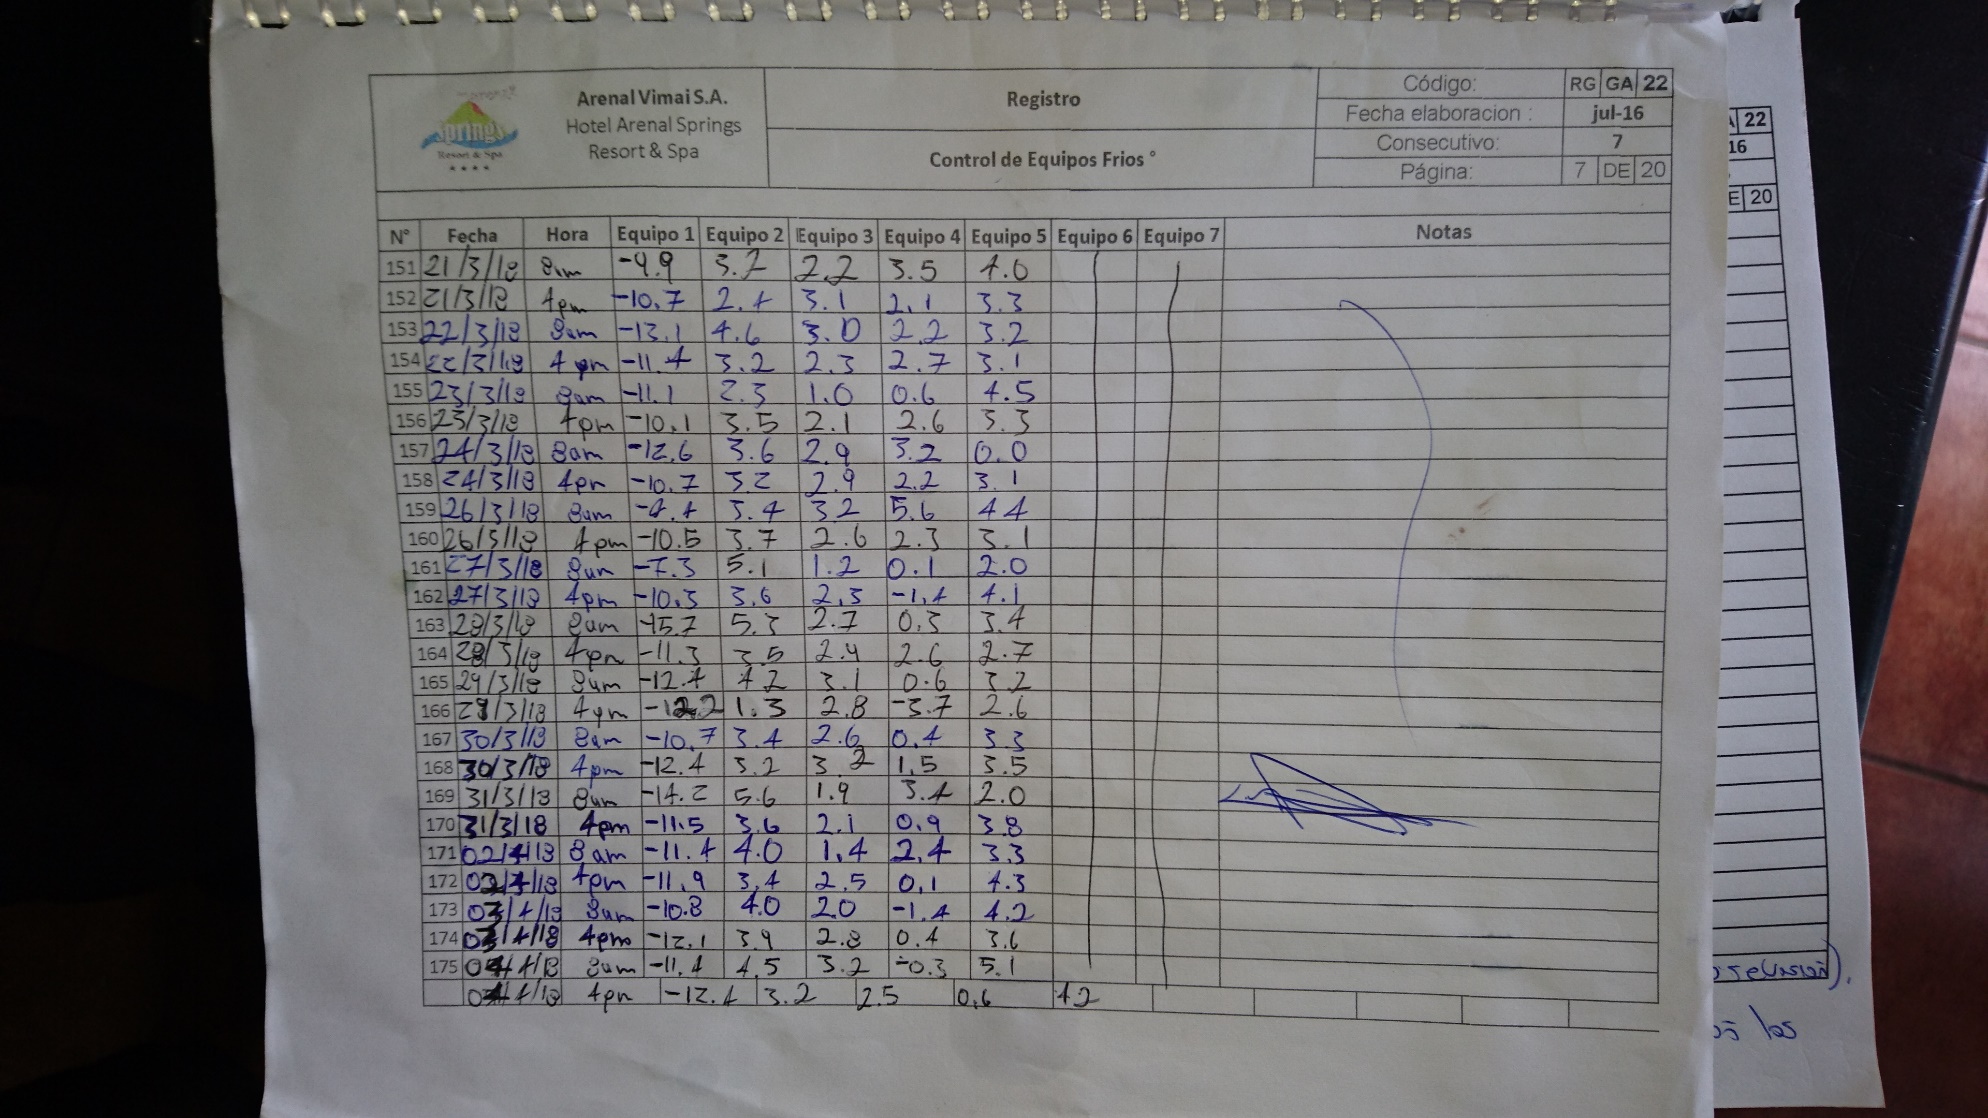 Springs
Resort & Spa
Arenal Vimai S.A.
Hotel Arenal Springs
Resort & Spa
Registro
Control de Equipos Frios °
Código: RG GA 22
Fecha elaboracion : jul-16
Consecutivo: 7
Página: 7 DE 20
N° Fecha Hora Equipo 1 Equipo 2 Equipo 3 Equipo 4 Equipo 5 Equipo 6 Equipo 7 Notas
151 21/3/18 8am -9.9 3.2 2.2 3.5 4.0
152 21/3/18 4pm -10.7 2.4 3.1 2.1 3.3
153 22/3/18 8am -13.1 4.6 3.0 2.2 3.2
154 22/3/18 4pm -11.4 3.2 2.3 2.7 3.1
155 23/3/18 8am -11.1 2.3 1.0 0.6 4.5
156 23/3/18 4pm -10.1 3.5 2.1 2.6 3.3
157 24/3/18 8am -12.6 3.6 2.9 3.2 0.0
158 24/3/18 4pm -10.7 3.2 2.9 2.2 3.1
159 26/3/18 8am 3.4 3.2 5.6 4.4
160 26/3/18 4pm -10.5 3.7 2.6 2.3 3.1
161 27/3/18 8am -7.3 5.1 1.2 0.1 2.0
162 27/3/18 4pm -10.3 3.6 2.3 -1.4 4.1
163 28/3/18 8am -15.7 5.3 2.7 0.3 3.4
164 28/3/18 4pm -11.3 3.5 2.4 2.6 2.7
165 29/3/18 8am -12.4 4.2 3.1 0.6 3.2
166 29/3/18 4pm -12.2 1.3 2.8 -3.7 2.6
167 30/3/18 8am -10.7 3.4 2.6 0.4 3.3
168 30/3/18 4pm -12.4 3.2 3.2 1.5 3.5
169 31/3/18 8am -14.2 5.6 1.9 3.4 2.0
170 31/3/18 4pm -11.5 3.6 2.1 0.9 3.8
171 02/4/18 8am -11.4 4.0 1.4 2.4 3.3
172 02/4/18 4pm -11.9 3.4 2.5 0.1 4.3
173 03/4/18 8am -10.8 4.0 2.0 -1.4 4.2
174 03/4/18 4pm -12.1 3.9 2.8 0.4 3.6
175 04/4/18 8am -11.4 4.5 3.2 -0.3 5.1
04/4/18 4pm -12.4 3.2 2.5 0.6 4.2
22
16
E 20
los